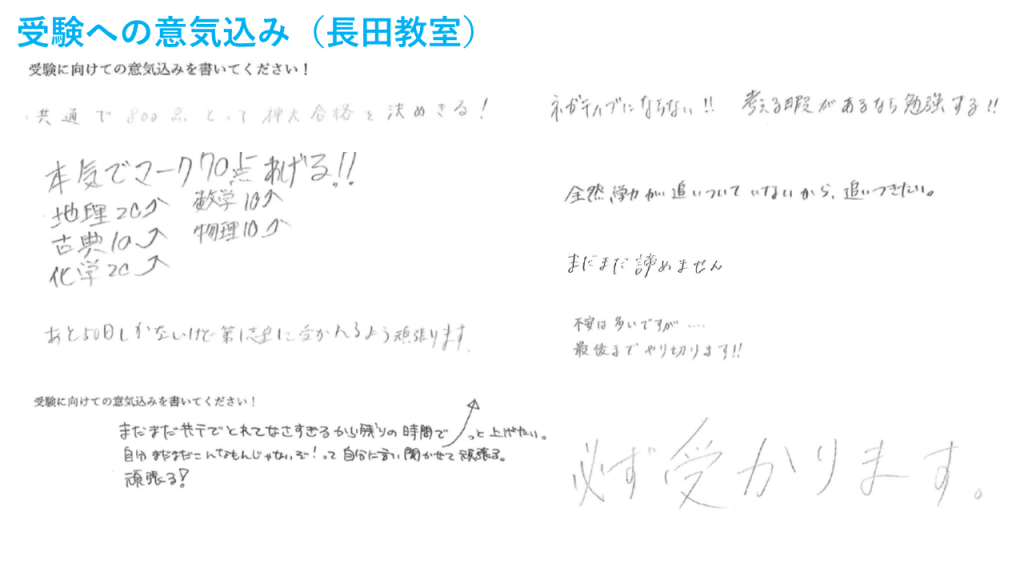 受験への意気込み（長田教室）
受験に向けての意気込みを書いてください！
共通で800点とって神大合格を決めきる！
本気でマーク70点上げる!!
地理20↗ 数学10↗
古典10↗ 物理10↗
化学20↗
あと50日しかないけど第1志望に受かれるよう頑張ります。
受験に向けての意気込みを書いてください！
まだまだ共テでとれてなさすぎるから残りの時間で ↗ っと上げたい。
自分まだまだこんなもんじゃないぞ！って自分に言い聞かせて頑張る。
頑張る！
ネガティブにならない!! 考える暇があるなら勉強する!!
全然学力が追いついていないから、追いつきたい。
まだまだ諦めません
不安は多いですが....
最後までやり切ります!!
必ず受かります。